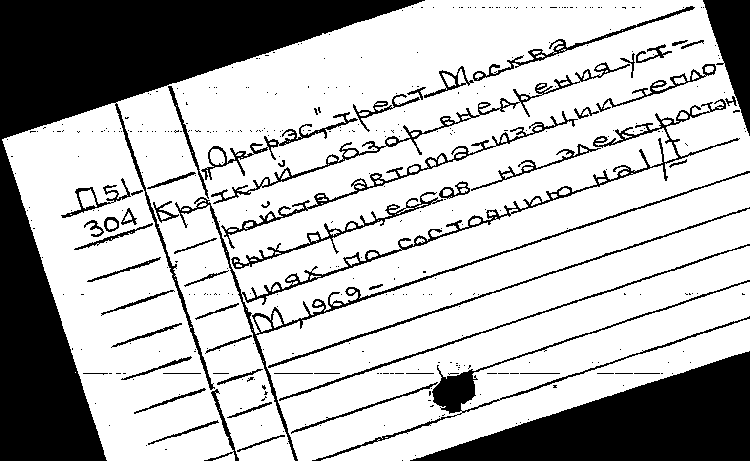 „Оргрэс", трест Москва
П51 Краткий обзор внедрения уст=
304 ройств автоматизации тепло-
вых процессов на электростан-
циях по состоянию на 1/I
М., 1969 - . .